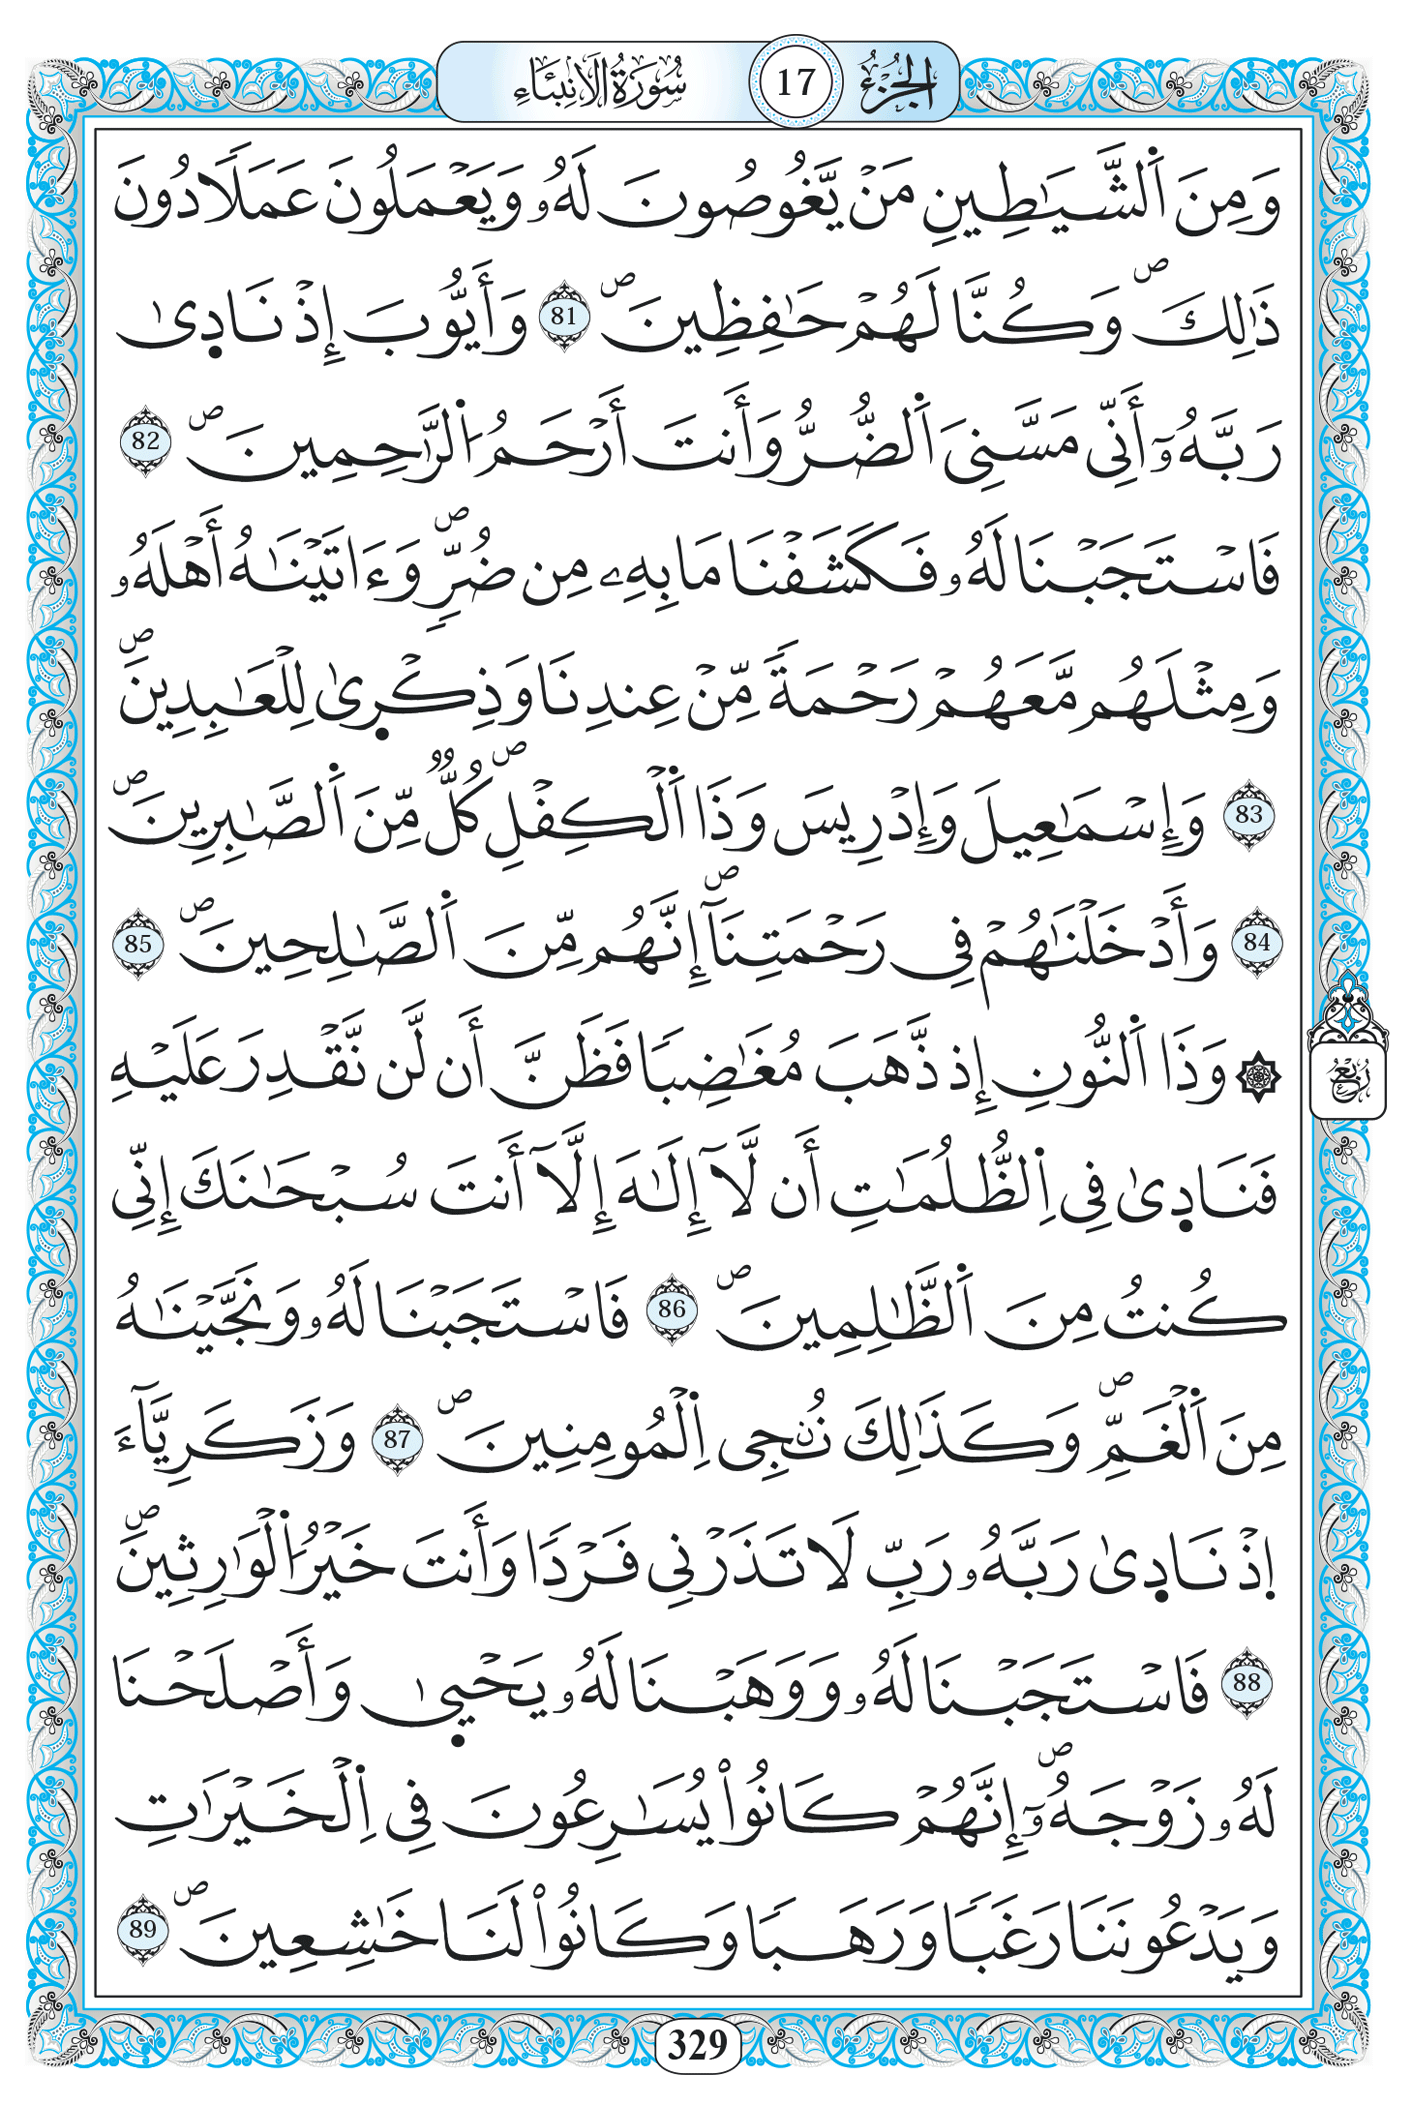 الجزء 17 سورة الأنبياء
وَمِنَ اَ۬لشَّيَٰطِينِ مَنْ يَّغُوصُونَ لَهُۥ وَيَعْمَلُونَ عَمَلاٗ دُونَ
ذَٰلِكَۖ وَكُنَّا لَهُمْ حَٰفِظِينَۖ 81 وَأَيُّوبَ إِذْ نَاد۪ىٰ
رَبَّهُۥٓ أَنِّى مَسَّنِىَ اَ۬لضُّرُّ وَأَنتَ أَرْحَمُ اُ۬لرَّٰحِمِينَۖ 82
فَاسْتَجَبْنَا لَهُۥ فَكَشَفْنَا مَا بِهِۦ مِن ضُرّٖۖ وَءَاتَيْنَٰهُ أَهْلَهُۥ
وَمِثْلَهُم مَّعَهُمْ رَحْمَةٗ مِّنْ عِندِنَا وَذِكْر۪ىٰ لِلْعَٰبِدِينَۖ
83 وَإِسْمَٰعِيلَ وَإِدْرِيسَ وَذَا اَ۬لْكِفْلِۖ كُلّٞ مِّنَ اَ۬لصَّٰبِرِينَۖ
84 وَأَدْخَلْنَٰهُمْ فِى رَحْمَتِنَآۖ إِنَّهُم مِّنَ اَ۬لصَّٰلِحِينَۖ 85
۞ وَذَا اَ۬لنُّونِ إِذ ذَّهَبَ مُغَٰضِباٗ فَظَنَّ أَن لَّن نَّقْدِرَ عَلَيْهِ
فَنَاد۪ىٰ فِى اِ۬لظُّلُمَٰتِ أَن لَّآ إِلَٰهَ إِلَّآ أَنتَ سُبْحَٰنَكَ إِنِّى
كُنتُ مِنَ اَ۬لظَّٰلِمِينَۖ 86 فَاسْتَجَبْنَا لَهُۥ وَنَجَّيْنَٰهُ
مِنَ اَ۬لْغَمِّۖ وَكَذَٰلِكَ نُۨجِى اِ۬لْمُومِنِينَۖ 87 وَزَكَرِيَّآءَ
اِ۪ذْ نَاد۪ىٰ رَبَّهُۥ رَبِّ لَا تَذَرْنِى فَرْداٗ وَأَنتَ خَيْرُ اُ۬لْوَٰرِثِينَۖ
88 فَاسْتَجَبْنَا لَهُۥ وَوَهَبْنَا لَهُۥ يَحْي۪ىٰ وَأَصْلَحْنَا
لَهُۥ زَوْجَهُۥٓۖ إِنَّهُمْ كَانُواْ يُسَٰرِعُونَ فِى اِ۬لْخَيْرَٰتِ
وَيَدْعُونَنَا رَغَباٗ وَرَهَباٗ وَكَانُواْ لَنَا خَٰشِعِينَۖ 89
ربع
329